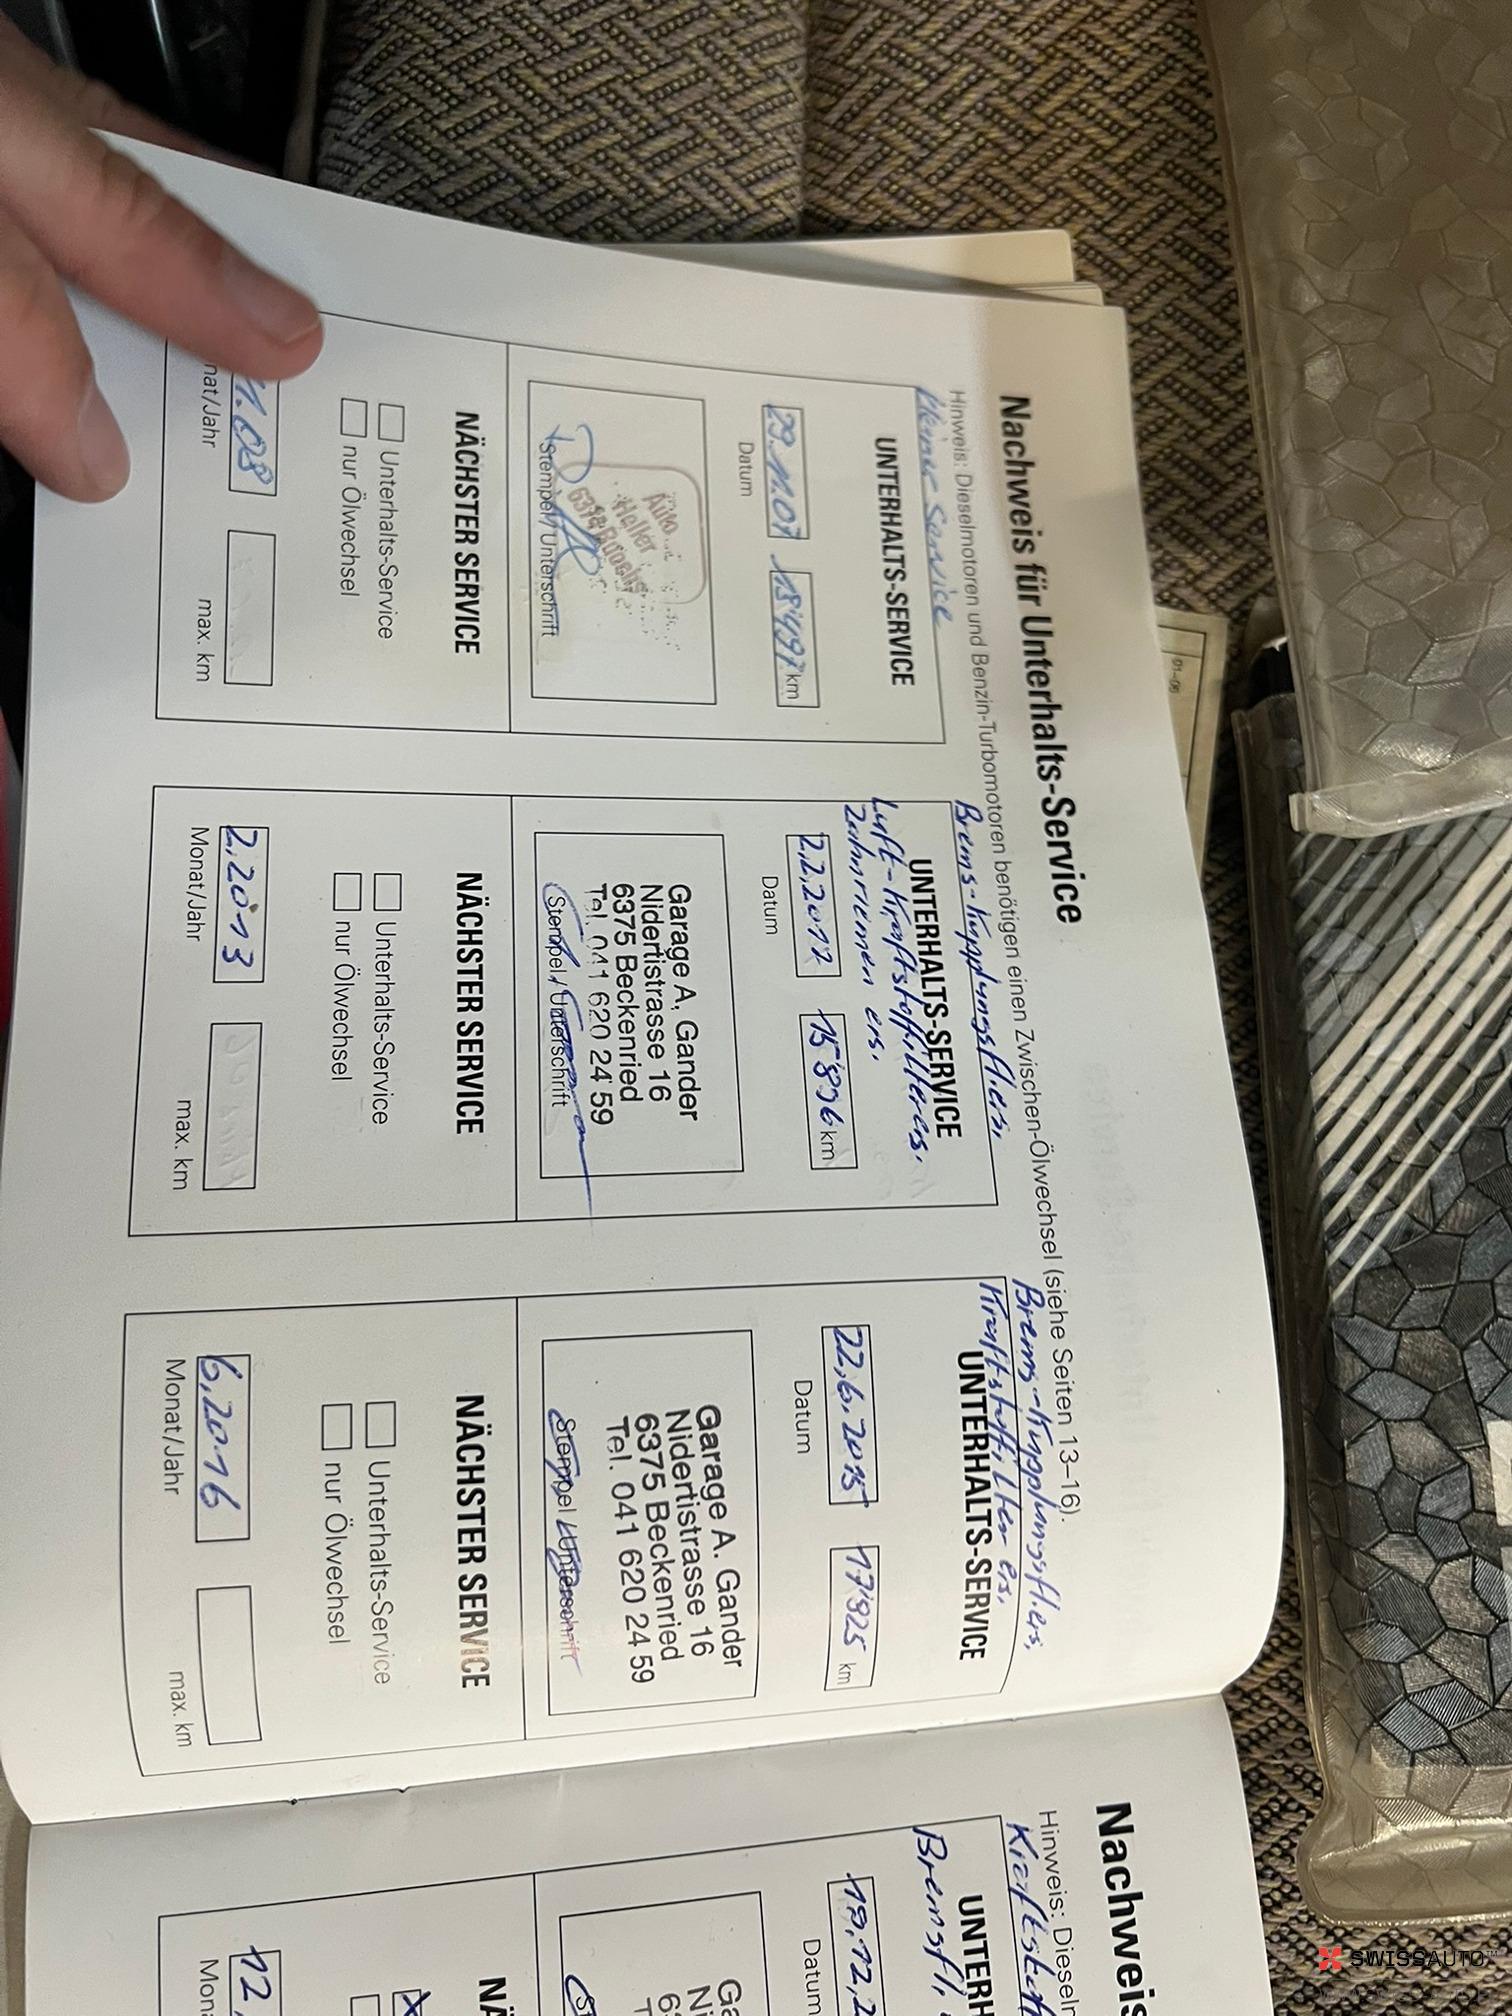 Nachweis für Unterhalts-Service
Hinweis: Dieselmotoren und Benzin-Turbomotoren benötigen einen Zwischen-Ölwechsel (siehe Seiten 13–16).
Kleine Service
UNTERHALTS-SERVICE
29.11.07 15'497 km
Datum
Auto
Heller
Stempel / Unterschrift
NÄCHSTER SERVICE
Unterhalts-Service
nur Ölwechsel
1.08
nat/Jahr
max. km
Brems-Kupplungsfl.ers,
UNTERHALTS-SERVICE
Luft-Kraftstoffilter ers.
Zahnriemen ers.
2,2,2012 15'896 km
Datum
Garage A. Gander
Nidertistrasse 16
6375 Beckenried
Tel. 041 620 24 59
Stempel / Unterschrift
NÄCHSTER SERVICE
Unterhalts-Service
nur Ölwechsel
2,2013
Monat/Jahr
max. km
Brems-Kupplungsfl.ers,
Kraftstoffilter ers,
UNTERHALTS-SERVICE
22,6,2015 17'925 km
Datum
Garage A. Gander
Nidertistrasse 16
6375 Beckenried
Tel. 041 620 24 59
Stempel / Unterschrift
NÄCHSTER SERVICE
Unterhalts-Service
nur Ölwechsel
6,2016
Monat/Jahr
max. km
Nachweis
Hinweis: Dieseln
Kraftsto
UNTERH
Bremsfl,
19,12,2
Datum
Ga
Ni
6
T
St
NÄ
12,
Mona
01-06
SWISSAUTO™